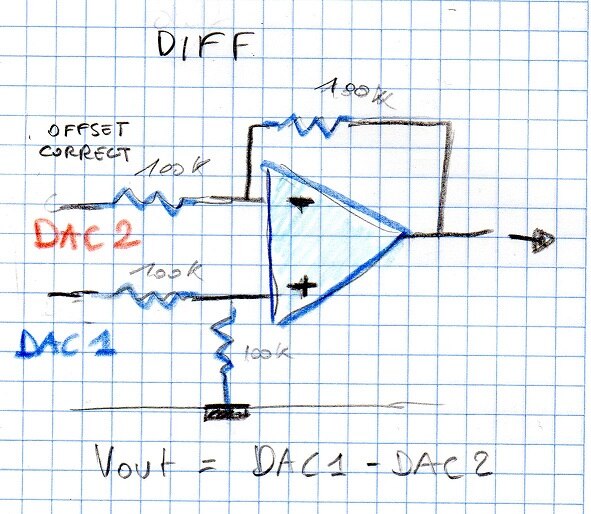 DIFF
100K
OFFSET
CORRECT
100K
-
DAC2
+
100K
DAC1
100K
Vout = DAC1 - DAC2